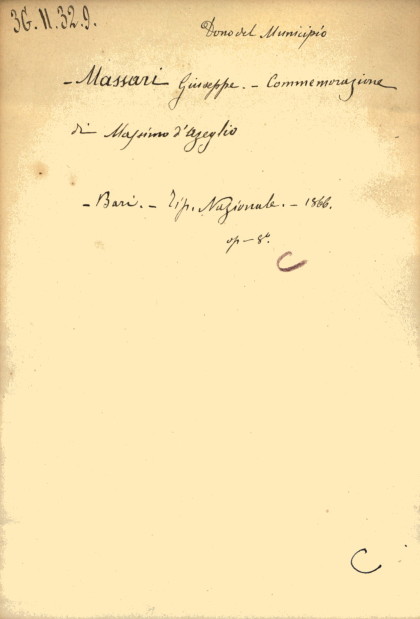 3G.II.32.9.
Dono del Municipio
- Massari Giuseppe. - Commemorazione
di Massimo d'Azeglio
- Bari. - Tip. Nazionale. - 1866.
op - 8.°
C
C